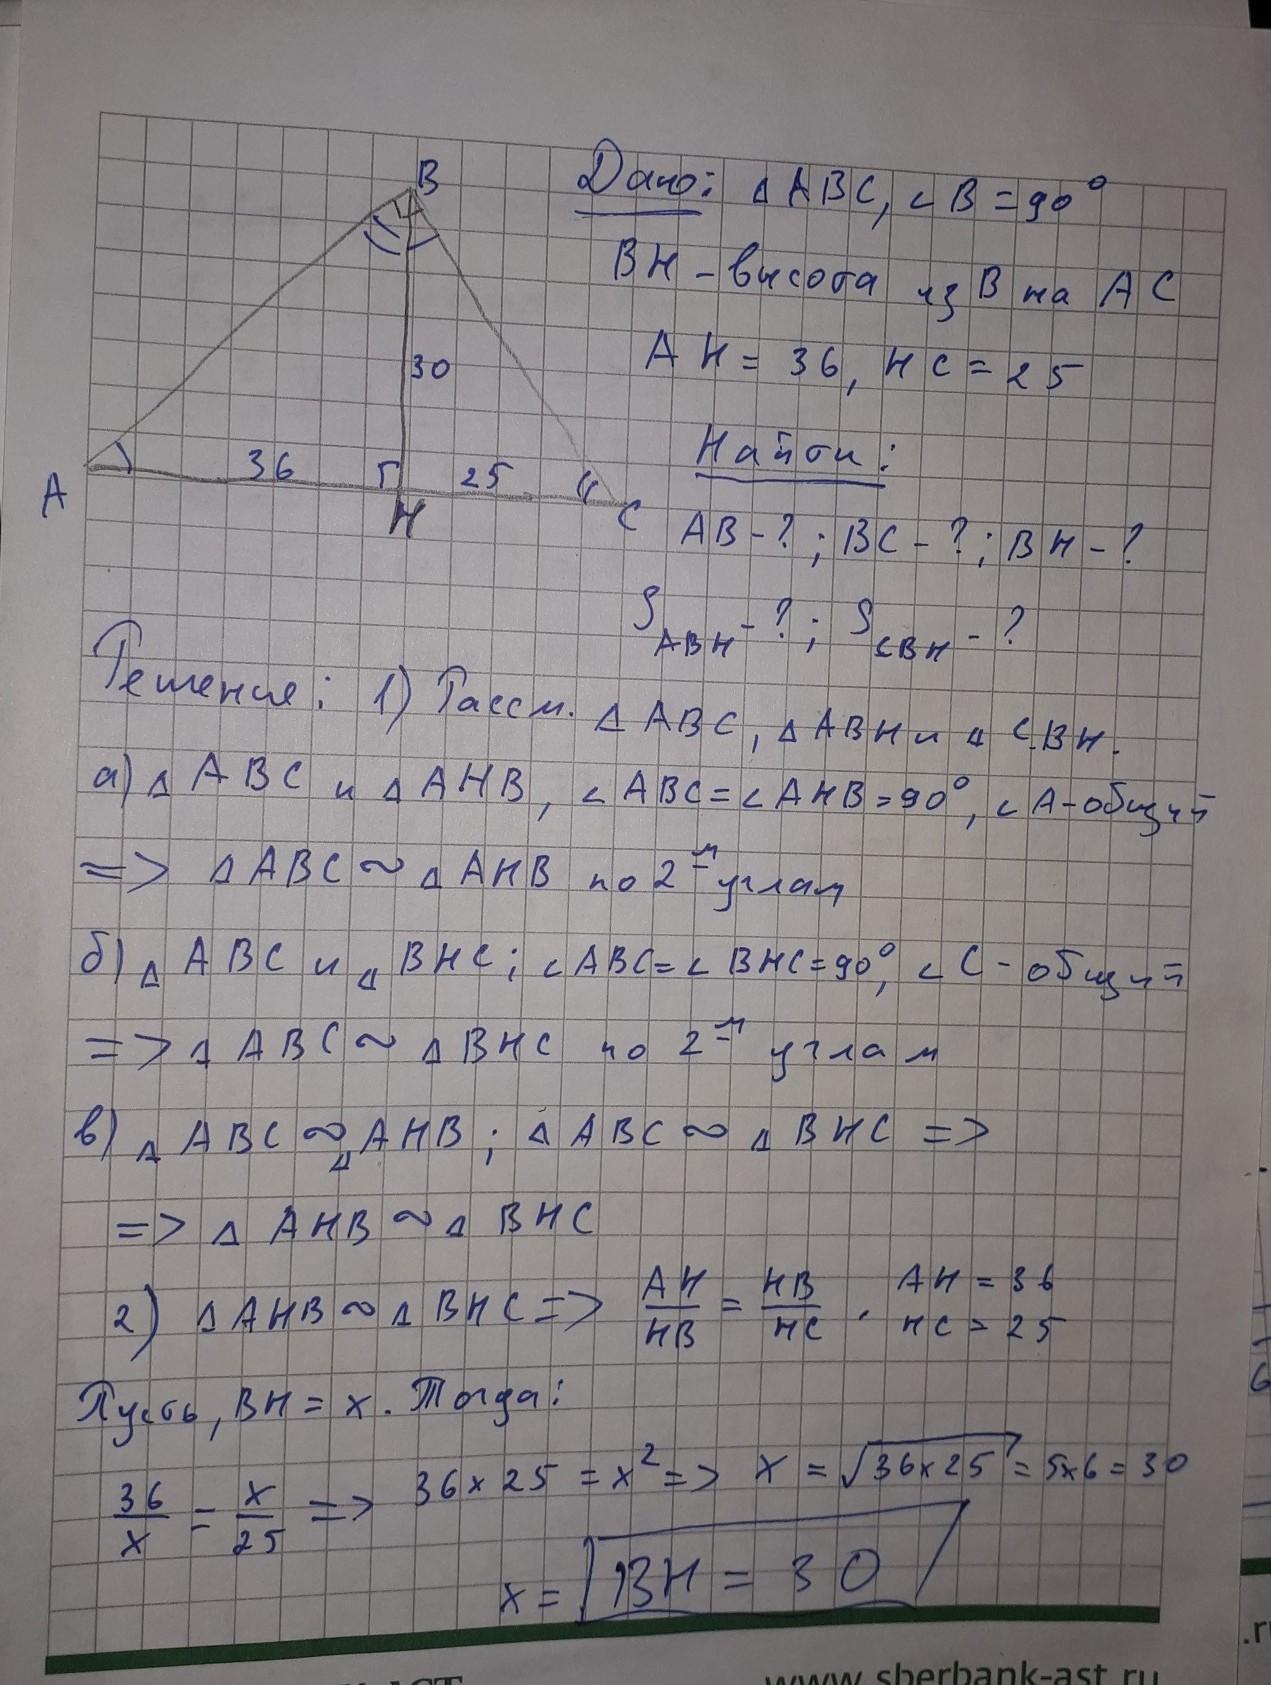 B
Дано: △ABC, ∠B=90°
BH - высота из B на AC
AH = 36, HC = 25
30
A
36
25
H
C
Найти:
AB-?; BC-?; BH-?
S ABH -?; S CBH -?
Решение: 1) Рассм. △ABC, △ABH и △CBH.
а) △ABC и △AHB, ∠ABC=∠AHB=90°, ∠A-общий
=> △ABC ~ △AHB по 2-м углам
б) △ABC и △BHC; ∠ABC=∠BHC=90°, ∠C-общий
=> △ABC ~ △BHC по 2-м углам
в) △ABC ~ △AHB; △ABC ~ △BHC =>
=> △AHB ~ △BHC
2) △AHB ~ △BHC => AH/HB = HB/HC. AH = 36
HC = 25
Пусть, BH = x. Тогда:
36/x = x/25 => 36x25 = x² => x = √36x25 = 5x6 = 30
x = BH = 30
www.sberbank-ast.ru